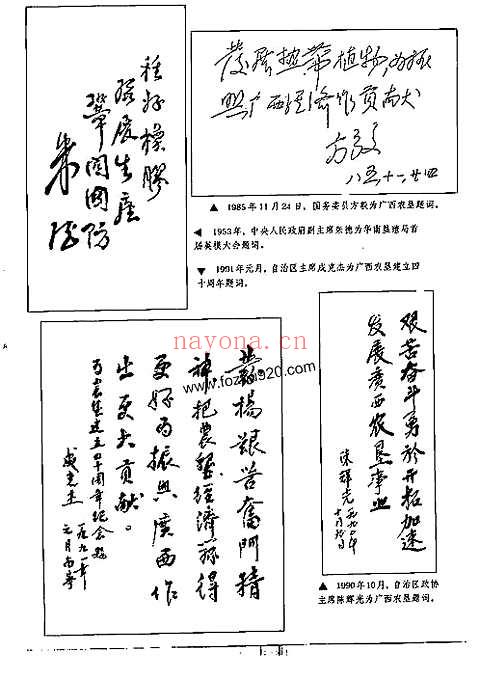 种好橡胶
发展生产
鞏固國防
朱德
发展热带植物，为振
兴广西经济作贡献
方毅
八五十一、廿四
▲ 1985年11月24日，国务委员方毅为广西农垦题词。
◀ 1953年，中央人民政府副主席朱德为华南垦殖局首
届英模大会题词。
▼ 1991年元月，自治区主席成克杰为广西农垦建立四
十周年题词。
發揚艱苦奮鬥精
神把農墾經濟搞得
更好为振興廣西作
出更大貢献。
农垦建立四十周年纪念
成克杰
一九九一年
元月南宁
艰苦奋斗勇於开拓加速
发展廣西农垦事业
陈辉光 一九九〇年
十月
▲ 1990年10月，自治区政协
主席陈辉光为广西农垦题词。
nayona.cn
www.fozhu920.com